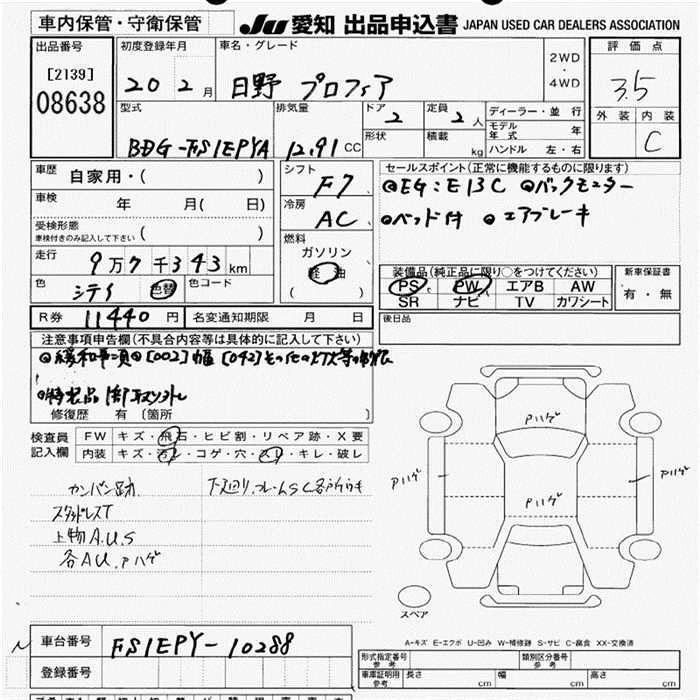 車内保管・守衛保管 JU 愛知 出品申込書 JAPAN USED CAR DEALERS ASSOCIATION
出品番号 初度登録年月 車名・グレード 2WD ・ 4WD 評価点
[2139] 20 2月 日野 プロフィア 3.5
08638 型式 排気量 ドア 2 定員 2人 ディーラー・並行 外装 内装
BDG-FS1EPYA 12.91 CC 形状 積載 kg モデル年式 年 C
ハンドル 左・右
車歴 自家用・( ) シフト F7 セールスポイント(正常に機能するものに限ります)
車検 年 月( 日) 冷房 AC ◎EG:E13C ◎バックモニター
受検形態 ( ) ◎ベッド付 ◎エアブレーキ
車検付きのみ記入して下さい
走行 9万7千343km 燃料 ガソリン 軽油 ( )
色 シロ 色替 色コード 装備品(純正品に限り○をつけてください) 新車保証書
PS PW エアB AW 有・無
SR ナビ TV カワシート
R券 11440円 名変通知期限 月 日 後日品
注意事項申告欄(不具合内容等は具体的に記入して下さい)
◎緩和事項◎[002]幅[042]その他
修復歴 有 〔箇所 〕
検査員記入欄 FW キズ・飛石・ヒビ割・リペア跡・X要
内装 キズ・汚レ・コゲ・穴・スレ・キレ・破レ
カンバン跡
スタッドレスT
上物A.U.S
各AU.Pハゲ
Pハゲ
Pハゲ Pハゲ
Pハゲ
スペア
車台番号 FS1EPY-10288
登録番号
A-キズ E-エクボ U-凹み W-補修跡 S-サビ C-腐食 XX-交換済
形式指定番号 参考 類別区分番号 参考
車庫証明用 参考 長さ cm 幅 cm 高さ cm